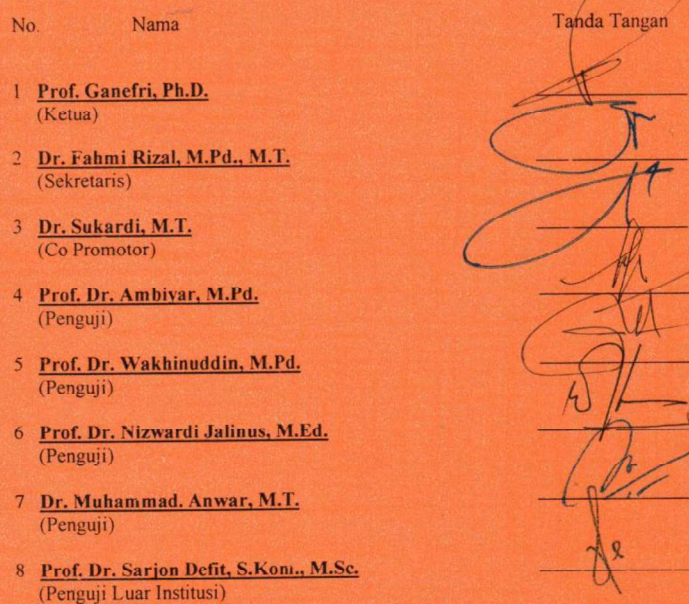 No. Nama Tanda Tangan
1 Prof. Ganefri, Ph.D.
(Ketua)
2 Dr. Fahmi Rizal, M.Pd., M.T.
(Sekretaris)
3 Dr. Sukardi, M.T.
(Co Promotor)
4 Prof. Dr. Ambiyar, M.Pd.
(Penguji)
5 Prof. Dr. Wakhinuddin, M.Pd.
(Penguji)
6 Prof. Dr. Nizwardi Jalinus, M.Ed.
(Penguji)
7 Dr. Muhammad. Anwar, M.T.
(Penguji)
8 Prof. Dr. Sarjon Defit, S.Kom., M.Sc.
(Penguji Luar Institusi)